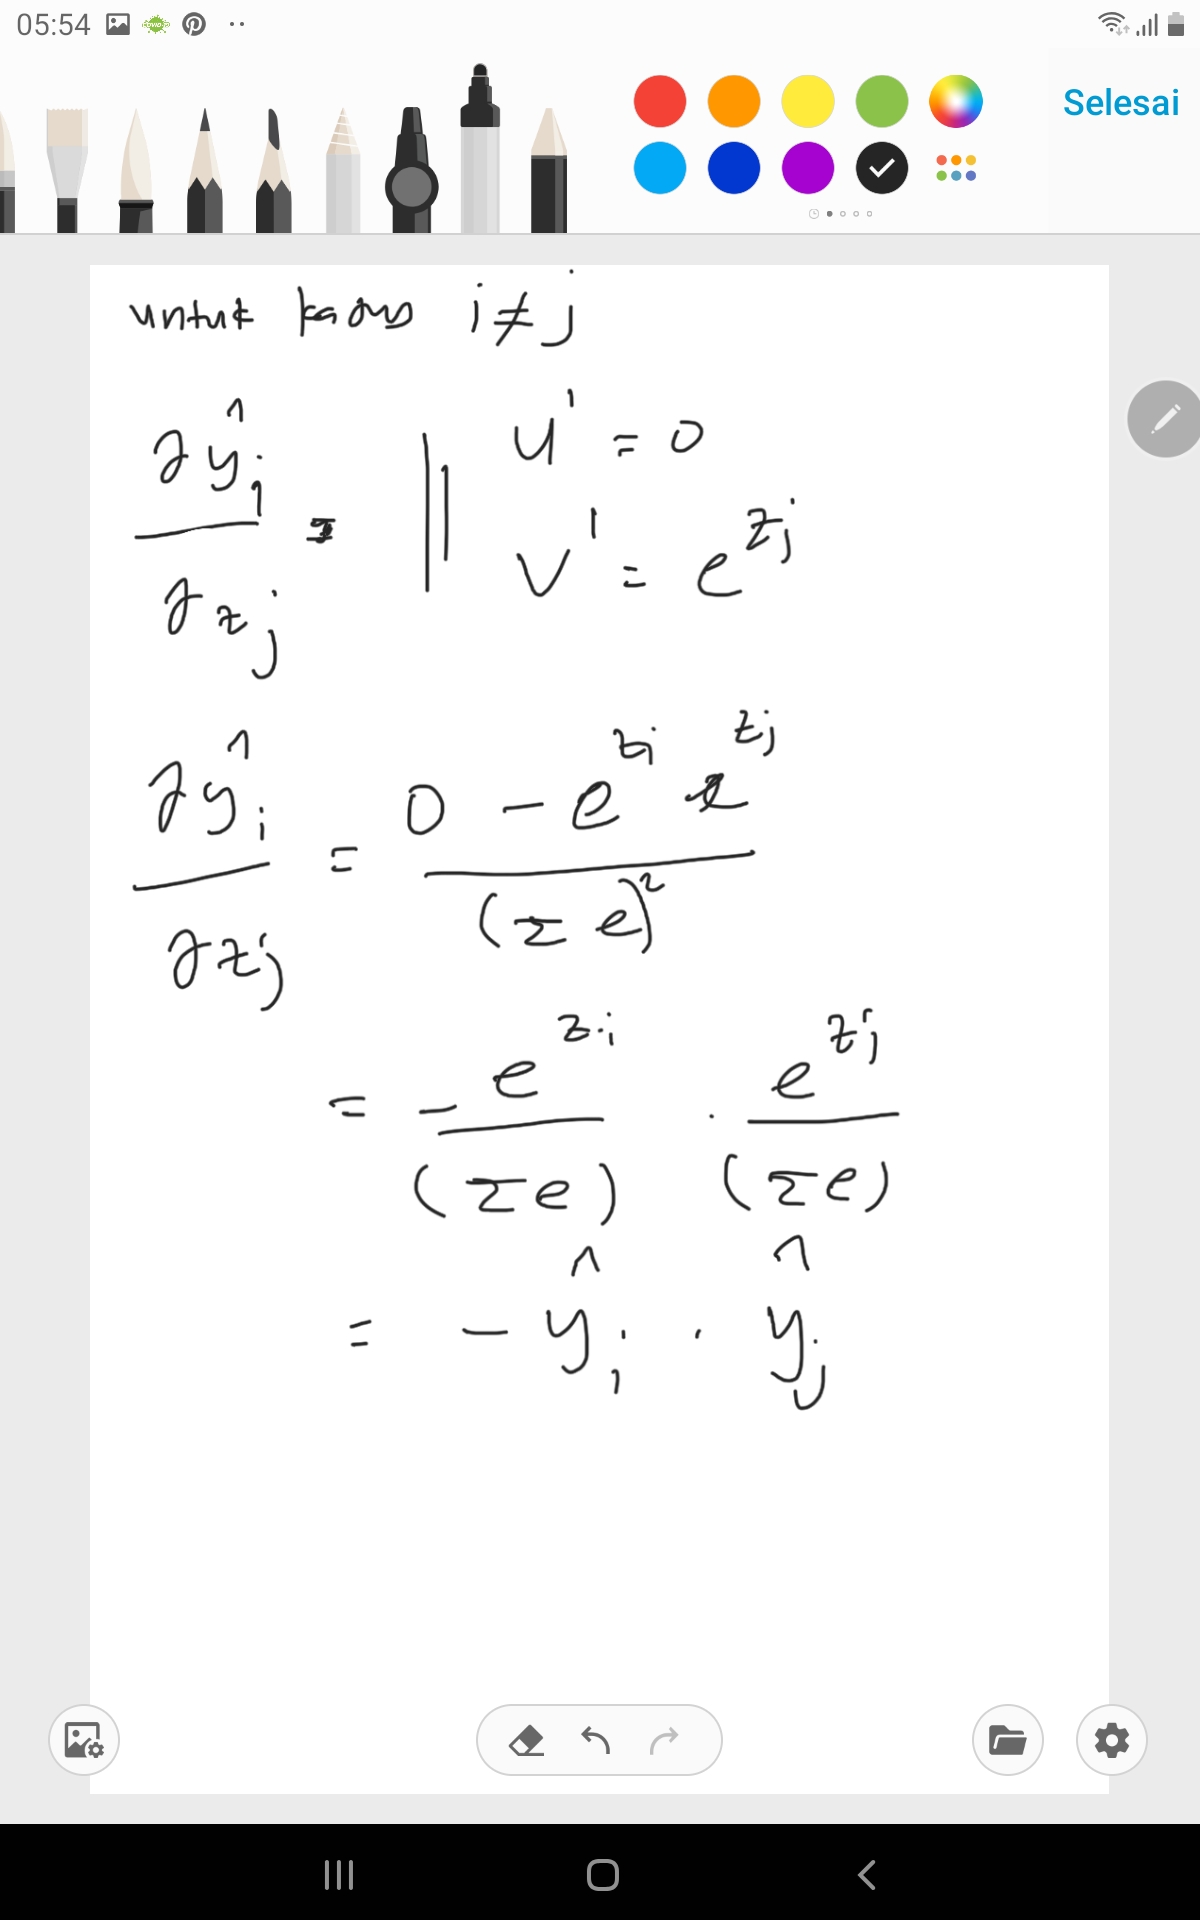 05:54
Selesai
untuk kasus i ≠ j
∂ŷi / ∂zj = || u' = 0
v' = e^zj
∂ŷi / ∂zj = 0 - e^zi e^zj / (Σ e)²
= - e^zi / (Σe) · e^zj / (Σe)
= - ŷi · ŷj